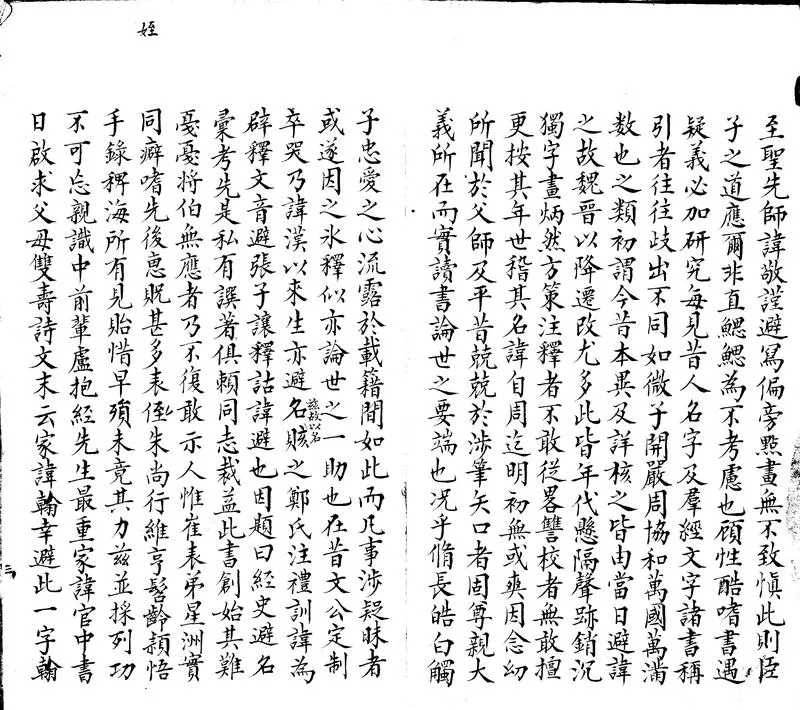 至聖先師諱敬謹避寫偏旁點畫無不致慎此則臣
子之道應爾非直鰓鰓為不考慮也顧性酷嗜書遇
疑義必加研究每見昔人名字及羣經文字諸書稱
引者往往歧出不同如微子開嚴周協和萬國萬滿
数也之類初謂今昔本異及詳核之皆由當日避諱
之故魏晉以降遷改尤多此皆年代懸隔聲跡銷沉
獨字畫炳然方策注釋者不敢從畧讐校者無敢擅
更按其年世稽其名諱自周迄明初無或爽因念幼
所聞於父師及平昔兢兢於涉筆矢口者固尊親大
義所在而實讀書論世之要端也况乎脩長皓白觸
子忠愛之心流露於載籍間如此而凡事涉疑昧者
或遂因之氷釋似亦論世之一助也在昔文公定制
卒哭乃諱漢以來生亦避名賅諡故以名之鄭氏注禮訓諱為
辟釋文音避張子讓釋詁諱避也因題曰經史避名
彙考先是私有譔著俱頼同志裁益此書創始其難
戞戞将伯無應者乃不復敢示人惟崔表弟星洲實
同癖嗜先後惠貺甚多表侄朱尚行維亨髫齡頴悟
手錄稗海所有見貽惜早殞未竟其力兹並採列功
不可忘親識中前輩盧抱經先生最重家諱官中書
日啟求父母雙壽詩文末云家諱翰幸避此一字翰
姪